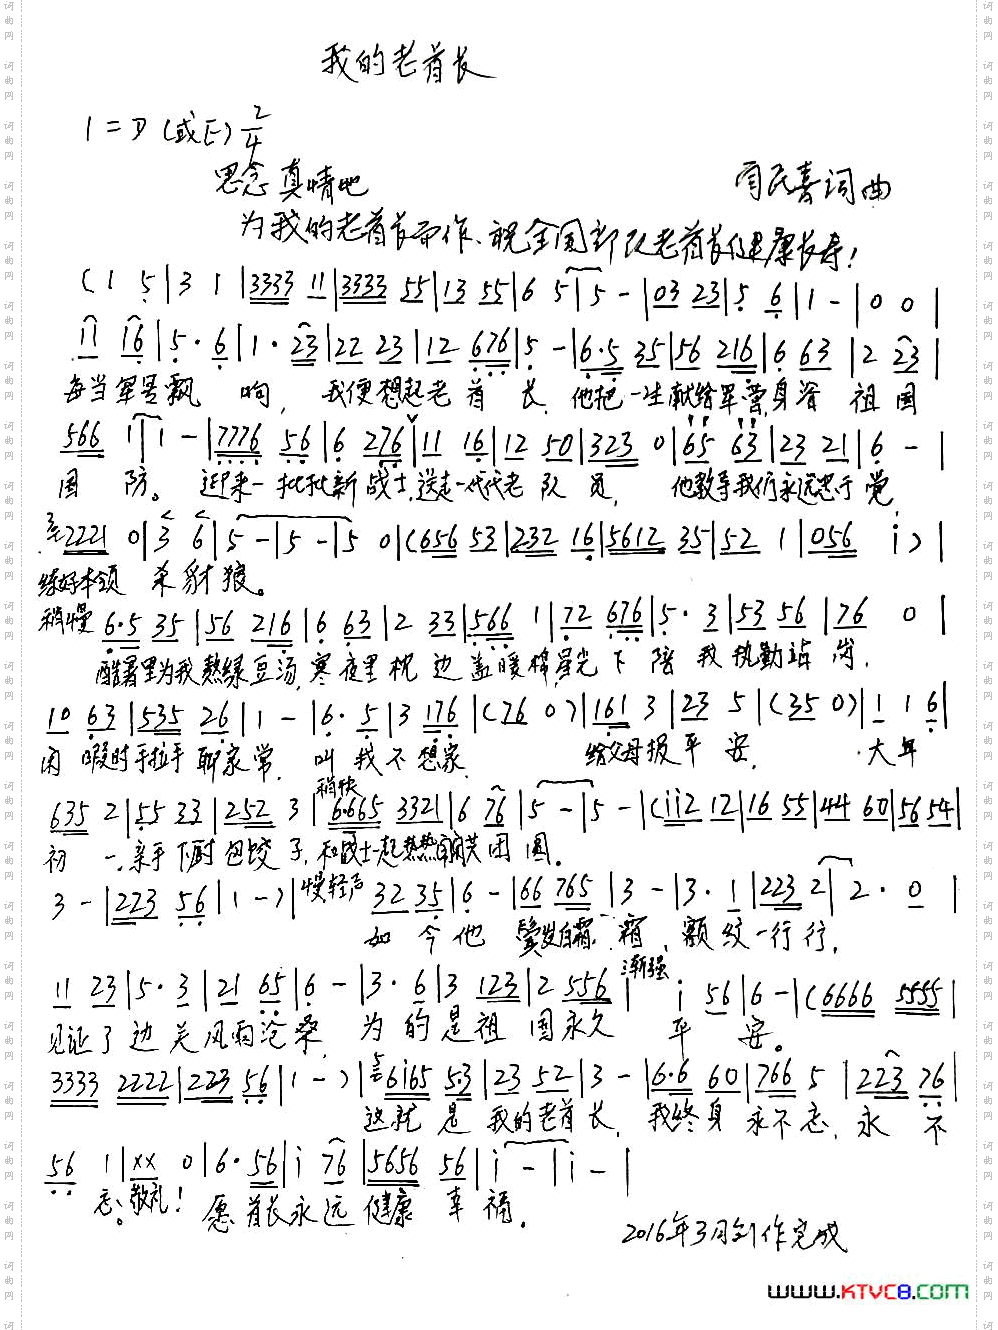 我的老首长
1=D (或E) 2/4
思念 真情地
民喜词曲
为我的老首长而作、祝全国部队老首长健康长寿!
(1 5|3 1|3333 11|3333 55|13 55|6 5|5 -|03 23|5 6|1 -|0 0|
11 16|5· 6|1· 23|22 23|12 676|5 -|6·5 35|56 216|6 63|2 23|
每当军号飘 响, 我便想起老首长, 他把一生献给军营,身许 祖国
566 1|1 -|7776 56|6 276|11 16|12 50|323 0|65 63|23 21|6 -|
国 防。 迎来一批批新战士,送走一代代老队员, 他教导我们永远忠于党
2221 0|3 6|5 -|5 -|5 0|(656 53|232 16|5612 35|52 1|056 i)|
练好本领 杀豺狼。
稍慢 6·5 35|56 216|6 63|2 33|566 1|72 676|5· 3|53 56|76 0|
酷暑里为我熬绿豆汤,寒夜里枕边盖暖棉,星光下陪我执勤站岗,
10 63|535 26|1 -|6· 5|3 176|(76 0)|161 3|23 5|(35 0)|1 1 6|
闲暇时手拉手聊家常, 叫我不想家, 给父母报平安, 大年
稍快
635 2|55 33|252 3|6·665 3321|6 76|5 -|5 -|(ii2 12|16 55|44 60|56 54|
初一,亲手下厨包饺子,和战士一起热热闹闹共团圆。
3 -|223 56|1 -)|慢轻声 32 35|6 -|66 765|3 -|3· 1|223 2|2· 0|
如今他 鬓发白霜 霜, 额纹一行行,
渐强
11 23|5· 3|21 65|6 -|3· 6|3 123|2 556| i 56|6 -|(6666 5555|
见证了边关风雨沧桑, 为的是祖国永久 平安。
3333 2222|223 56|1 -)|6165 5·3|23 52|3 -|6·6 60|766 5|223 76|
这就是我的老首长, 我终身永不忘,永不
56 1|xx 0|6· 56|i 76|5656 56|i -|i -|
忘。敬礼! 愿首长永远健康幸福。
2016年3月创作完成
www.KTVC8.com
词曲网